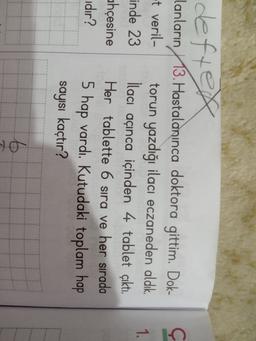 defter
lanların
t veril-
inde 23
ahçesine
ıdır?
13. Hastalanınca doktora gittim. Dok-
torun yazdığı ilacı eczaneden aldık.
İlacı açınca içinden 4 tablet çıktı.
Her tablette 6 sıra ve her sırada
5 hap vardı. Kutudaki toplam hap
sayısı kaçtır?
6
Ç
1.